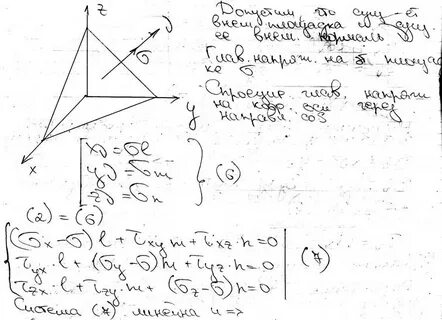 z
ν
σ
y
x
Допустим что сущ-ет
внеш. площадка и сущ.
ее внеш. нормаль ν
Глав. напряж. на площад
ке σ
Спроецир глав. напряж
на коорд оси через
направл. cos
xν = σl
yν = σm
zν = σn
(6)
(2) = (6)
(σx-σ) l + τxy m + τxz · n = 0
τyx · l + (σy-σ) m + τyz · n = 0
τzx · l + τzy · m + (σz-σ) n = 0
(7)
Система (7) линейна и =>